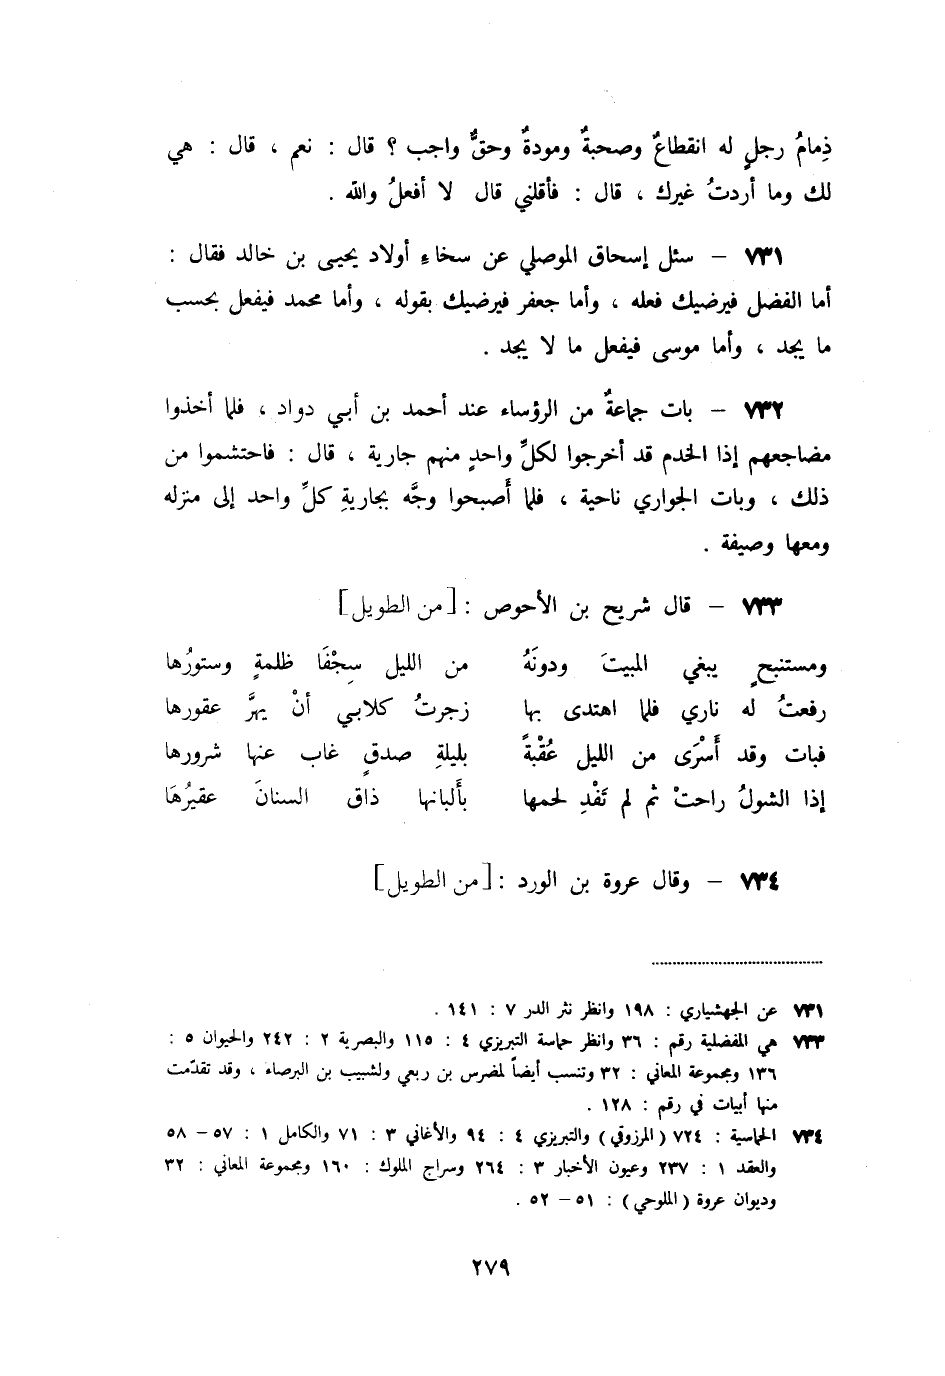 ذِمامُ رجلٍ له انقطاعٌ وصحبةٌ ومودةٌ وحقٌّ واجب ؟ قال : نعم ، قال : هي
لك وما أردتُ غيرك ، قال : فأقلني قال لا أفعلُ والله .
٧٣١ – سئل إسحاق الموصلي عن سخاءِ أولاد يحيى بن خالد فقال :
أما الفضل فيرضيك فعله ، وأما جعفر فيرضيك بقوله ، وأما محمد فيفعل بحسب
ما يجد ، وأما موسى فيفعل ما لا يجد .
٧٣٢ – بات جماعةٌ من الرؤساء عند أحمد بن أبي دواد ، فلما أخذوا
مضاجعهم إذا الخدم قد أخرجوا لكلِّ واحدٍ منهم جارية ، قال : فاحتشموا من
ذلك ، وبات الجواري ناحية ، فلما أَصبحوا وجَّه بجاريةِ كلِّ واحد إلى منزله
ومعها وصيفة .
٧٣٣ – قال شريح بن الأحوص : [من الطويل]
ومستنبحٍ يبغي المبيتَ ودونَهُ من الليل سِجْفَا ظلمةٍ وستورُها
رفعتُ له ناري فلما اهتدى بها زجرتُ كلابي أنْ يهرَّ عقورها
فبات وقد أَسْرَى من الليل عُقْبةً بليلةِ صدقٍ غاب عنها شرورها
إذا الشولُ راحتْ ثم لم تَفْدِ لحمها بأَلبانها ذاق السنانَ عقيرُهَا
٧٣٤ – وقال عروة بن الورد : [من الطويل]
٧٣١ عن الجهشياري : ١٩٨ وانظر نثر الدر ٧ : ١٤١ .
٧٣٣ هي المفضلية رقم : ٣٦ وانظر حماسة التبريزي ٤ : ١١٥ والبصرية ٢ : ٢٤٢ والحيوان ٥ :
١٣٦ ومجموعة المعاني : ٣٢ وتنسب أيضاً لمضرس بن ربعي ولشبيب بن البرصاء ، وقد تقدّمت
منها أبيات في رقم : ١٢٨ .
٧٣٤ الحماسية : ٧٢٤ (المرزوقي) والتبريزي ٤ : ٩٤ والأغاني ٣ : ٧١ والكامل ١ : ٥٧ – ٥٨
والعقد ١ : ٢٣٧ وعيون الأخبار ٣ : ٢٦٤ وسراج الملوك : ١٦٠ ومجموعة المعاني : ٣٢
وديوان عروة (الملوحي) : ٥١ – ٥٢ .
٢٧٩